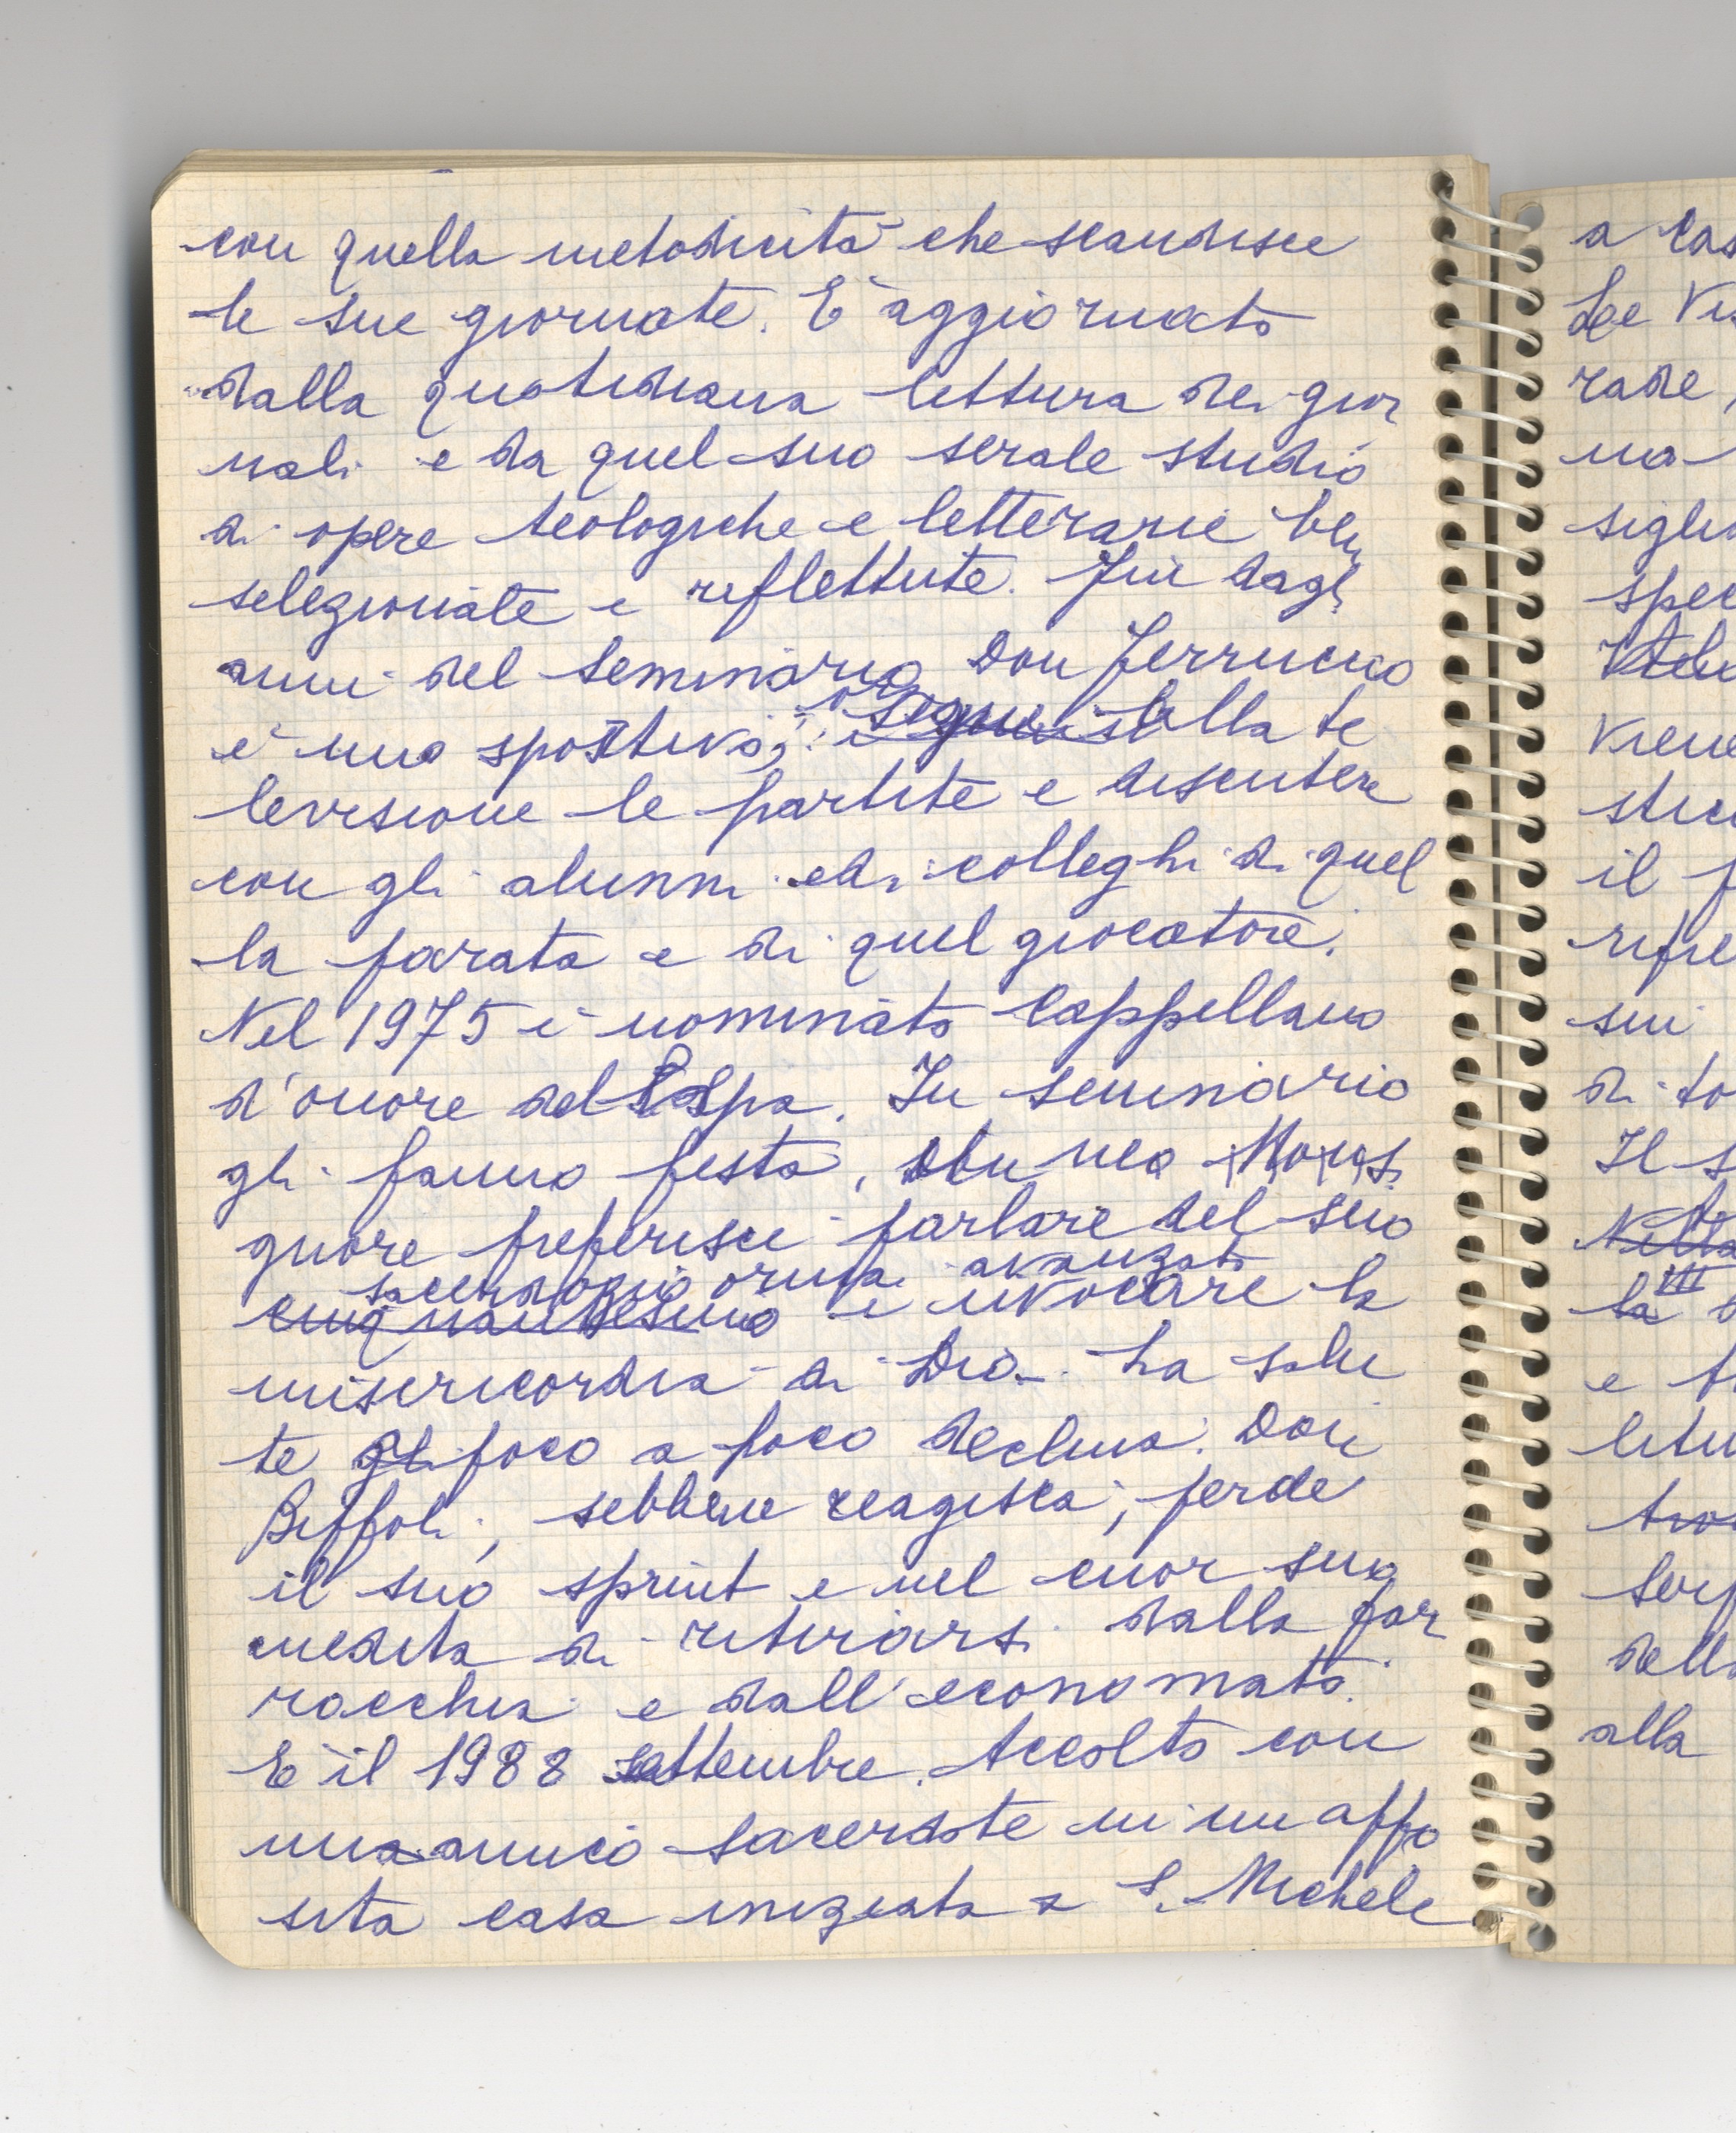 con quella metodicità che scandisce
le sue giornate. E' aggiornato
dalla quotidiana lettura dei gior
nali e da quel suo serale studio
di opere teologiche e letterarie ben
selezionate e riflettute. Fin dagli
anni del Seminario Don Ferruccio
è uno sportivo; alla te
levisione le partite e discutere
con gli alunni ed i colleghi di quel
la parata e di quel giocatore.
Nel 1975 è nominato Cappellano
d'onore del Papa. In seminario
gli fanno festa, Mons.
gnore preferisce parlare del suo
sacerdozio ormai avanzato
cinquantesimo e invocare la
misericordia di Dio. La salu
te gli poco a poco declina. Don
Biffoli, sebbene reagisca, perde
il suo sprint e nel cuor suo
medita di ritirarsi dalla par
rocchia e dall'economato.
E' il 1988 settembre. Accolto con
un amico sacerdote in un appo
sita casa iniziata a S. Michele
a cas
Le Vis
rade,
na
sigli
spec
viene
stic
il p
rifle
sui
di to
Il s
Nella
la VII
e
letu
della
alla